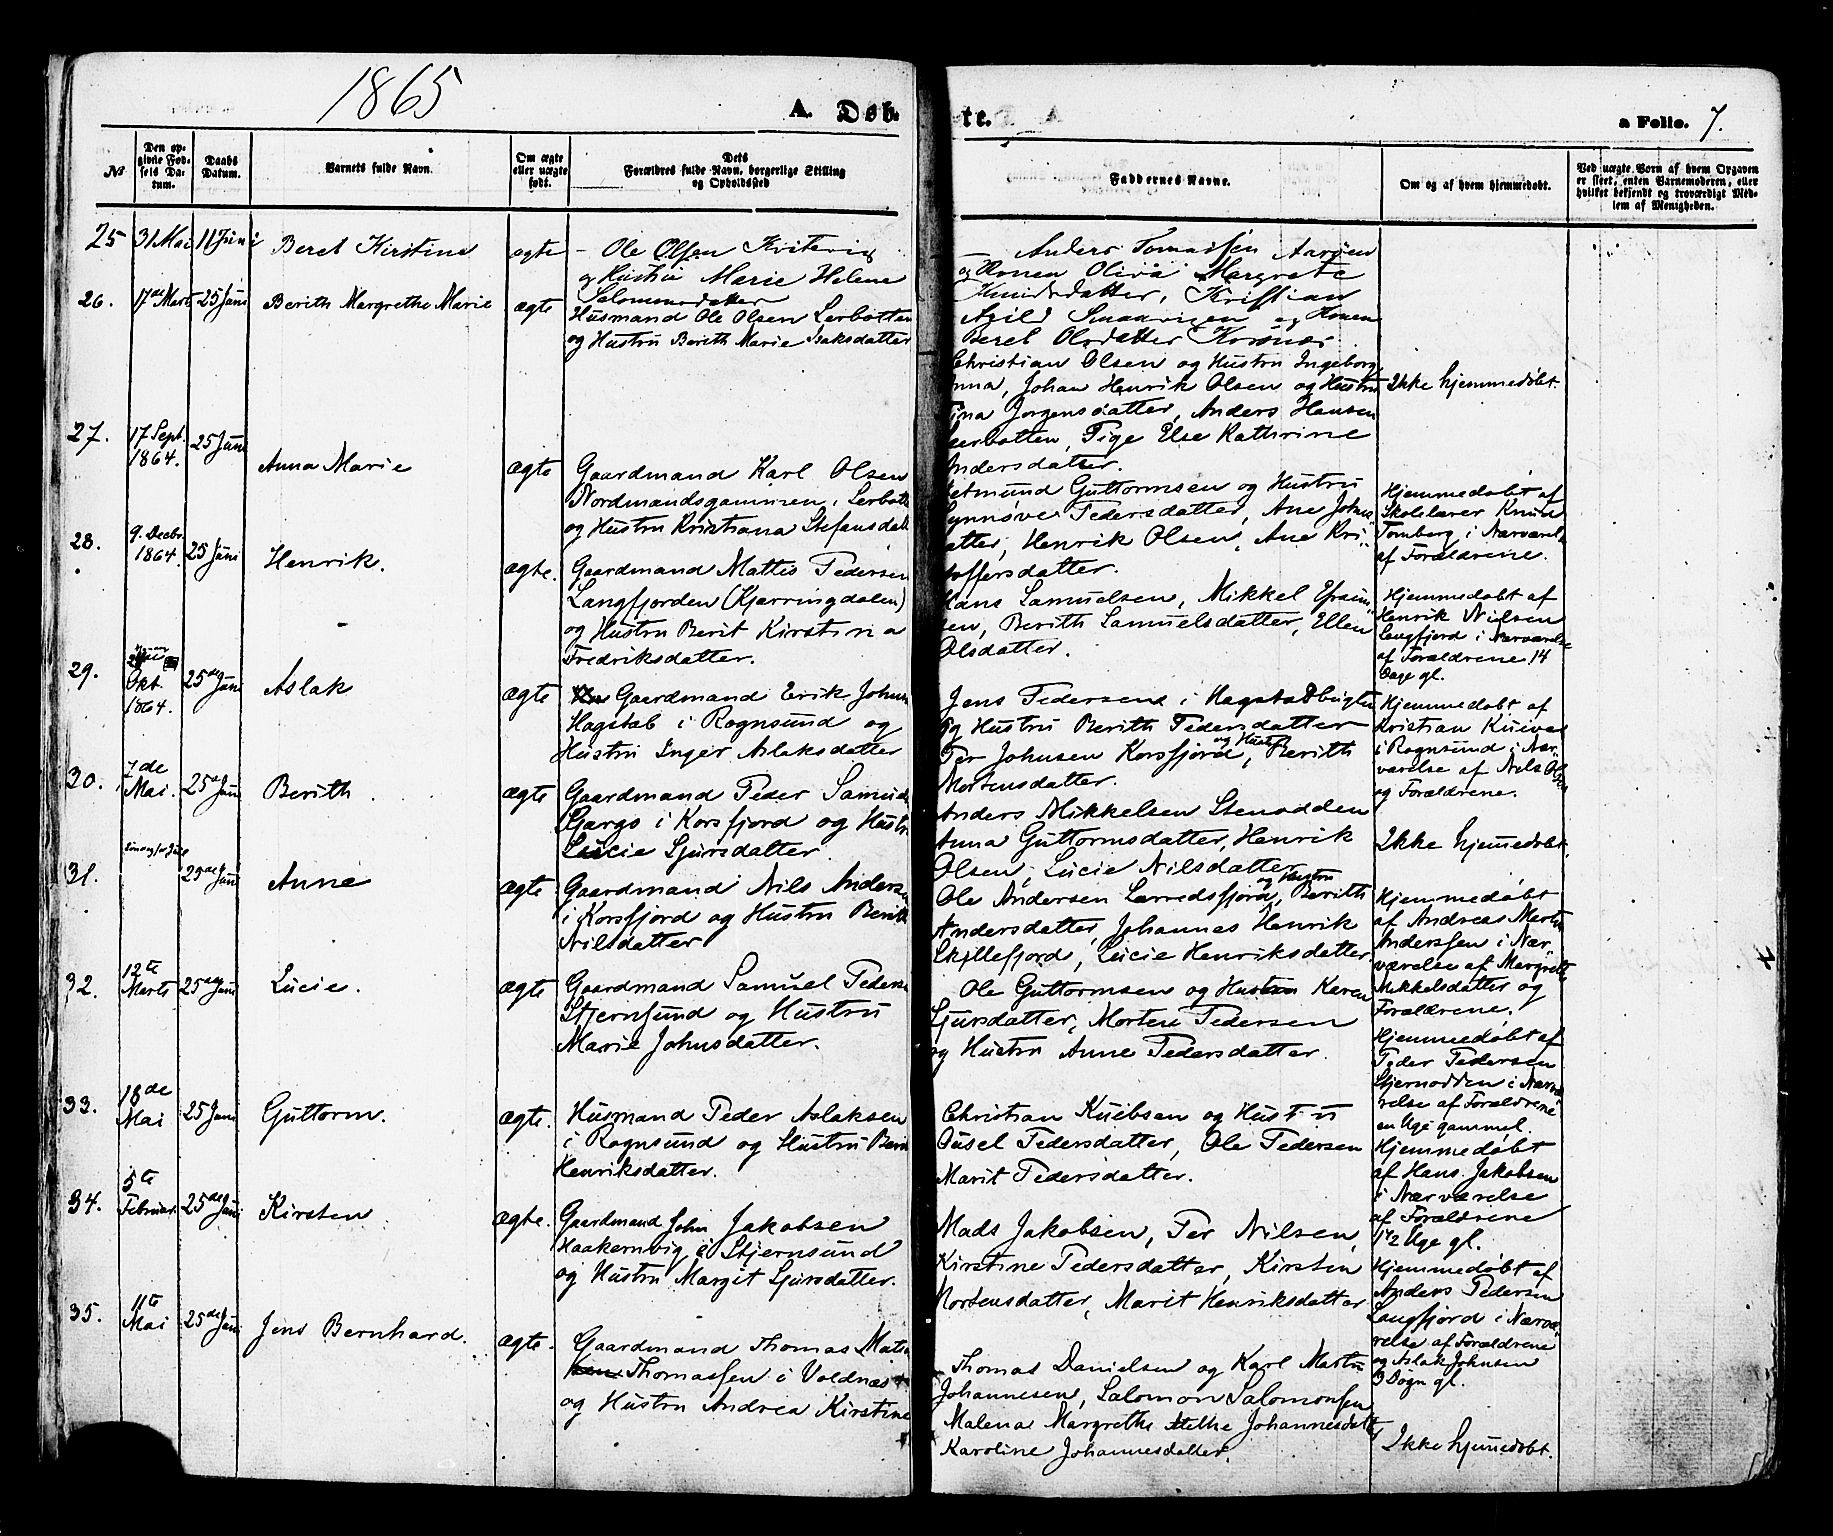 1865
A. Døb-
te.
a Folio. 7.
№
Den op-
givne Fød-
sels Da-
tum.
Daabs
Datum.
Barnets fulde Navn.
Om ægte
eller uægte
født.
Dets
Forældres fulde Navn, borgerlige Stilling
og Opholdssted
Faddernes Navne.
Om og af hvem hjemmedøbt.
Ved uægte Børn af hvem Opgaven
er skeet, enten Barnemoderen, eller
hvilket bekjendt og troværdigt Med-
lem af Menigheden.
25 31 Mai 11 Juni Beret Kirstine ægte
Ole Olsen Kvitevig
og Hustru Marie Helene
Salomonsdatter
Anders Tomassen Aarøen
og Konen Oliva Margrete
Knudsdatter, Kristian
og Konen
Beret Olsdatter Korsnæs
26. 17de Marts 25 Juni Berith Margrethe Marie ægte
Husmand Ole Olsen Lerbotten
og Hustru Berith Marie Isaksdatter
Christian Olsen og Hustru Ingeborg
Anna, Johan Henrik Olsen og Hustru
Tina Jørgensdatter, Anders Hansen
Lerbotten, Pige Else Kathrine
Andersdatter.
Ikke hjemmedøbt.
27. 17 Sept. 1864. 25 Juni Anna Marie ægte
Gaardmand Karl Olsen
Nordmandsgammen i Lerbott
og Hustru Kristiana Stefansdatt
Guttormsen og Hustru
Synnøve Pedersdatter, Ane Johns
datter, Henrik Olsen, Ane Kri-
stoffersdatter.
Hjemmedøbt af
Skolelærer Knud
Tomberg i Nærværel
af Forældrene.
28. 9. Decbr 1864. 25 Juni Henrik. ægte.
Gaardmand Mattis Pedersen
Langfjorden (Kjærringdalen)
og Hustru Berit Kirstina
Fredriksdatter.
Hans Samuelsen, Mikkel
sen, Berith Samuelsdatter, Ellen
Olsdatter.
Hjemmedøbt af
Henrik Nilsen
Langfjord i Nærværelse
af Forældrene 14
Dage gl.
29. Okt. 1864. 25de Juni Aslak ægte
Gaardmand Erik Johns
Hagstab i Rognsund og
Hustru Inger Aslaksdatter
Jens Pedersen i Hagstadbugten
og Hustru Berith Pedersdatter
Per Johnsen Korsfjord, og Hustru Berith
Mortensdatter.
Hjemmedøbt af
Kristian
i Rognsund i Nær-
værelse af Nils Olsen
og Forældrene.
30. 7de Mai. 25de Juni Berith ægte
Gaardmand Peder Samuels
i Korsfjord og Hustru
Lucie Sjursdatter.
Anders Mikkelsen Stenodden
Anna Guttormsdatter, Henrik
Olsen, Lucie Nilsdatter
Ikke hjemmedøbt.
31. 25de Juni Anne ægte
Gaardmand Nils Anders
i Korsfjord og Hustru Berith
Nilsdatter
Ole Andersen Lerredsfjord, og Hustru Berith
Andersdatter, Johannes Henrik
Skillefjord, Lucie Henriksdatter.
Hjemmedøbt
af Andreas Martin
Anderssen i Nær-
værelse af Margreth
Mikkelsdatter og
Forældrene.
32. 12te Marts 25de Juni Lucie. ægte
Gaardmand Samuel Peders
Stjernsund og Hustru
Marie Johnsdatter.
Ole Guttormsen og Hustru Karen
Sjursdatter, Morten Pedersen
og Hustru Anne Pedersdatter.
Hjemmedøbt af
Peder Pedersen
Stjernodden i Nærvæ
relse af Forældrene
en Uge gammel.
33. 18de Mai 25 Juni Guttorm. ægte.
Husmand Peder Aslaksen
i Rognsund og Hustru Berit
Henriksdatter.
Christian og Hustru
Pedersdatter, Ole Pedersen
Marit Pedersdatter.
Hjemmedøbt
af Hans Jakobsen
i Nærværelse
af Forældrene
1½ Uge gl.
34. 5te Februar. 25de Juni Kirsten ægte.
Gaardmand John Jakobsen
Haakernvig i Stjernsund
og Hustru Margit Sjursdatter.
Mads Jakobsen, Per Nilsen,
Kirstine Pedersdatter, Kirsten
Mortensdatter, Marit Henriksdatter
Hjemmedøbt af
Anders Pedersen
Langfjord i Nærvæ
relse af Forældrene
og Aslak Johnsen
3 Døgn gl.
35. 11te Mai 25de Juni Jens Bernhard. ægte.
Gaardmand Thomas
Thomassen i Voldnæs
og Hustru Andrea Kirstine
Thomas Danielsen og Karl Martin
Johannesen, Salomon Salomonsen
Malena Margrethe Johannesdatt
Karoline Johannesdatter.
Ikke hjemmedøbt.